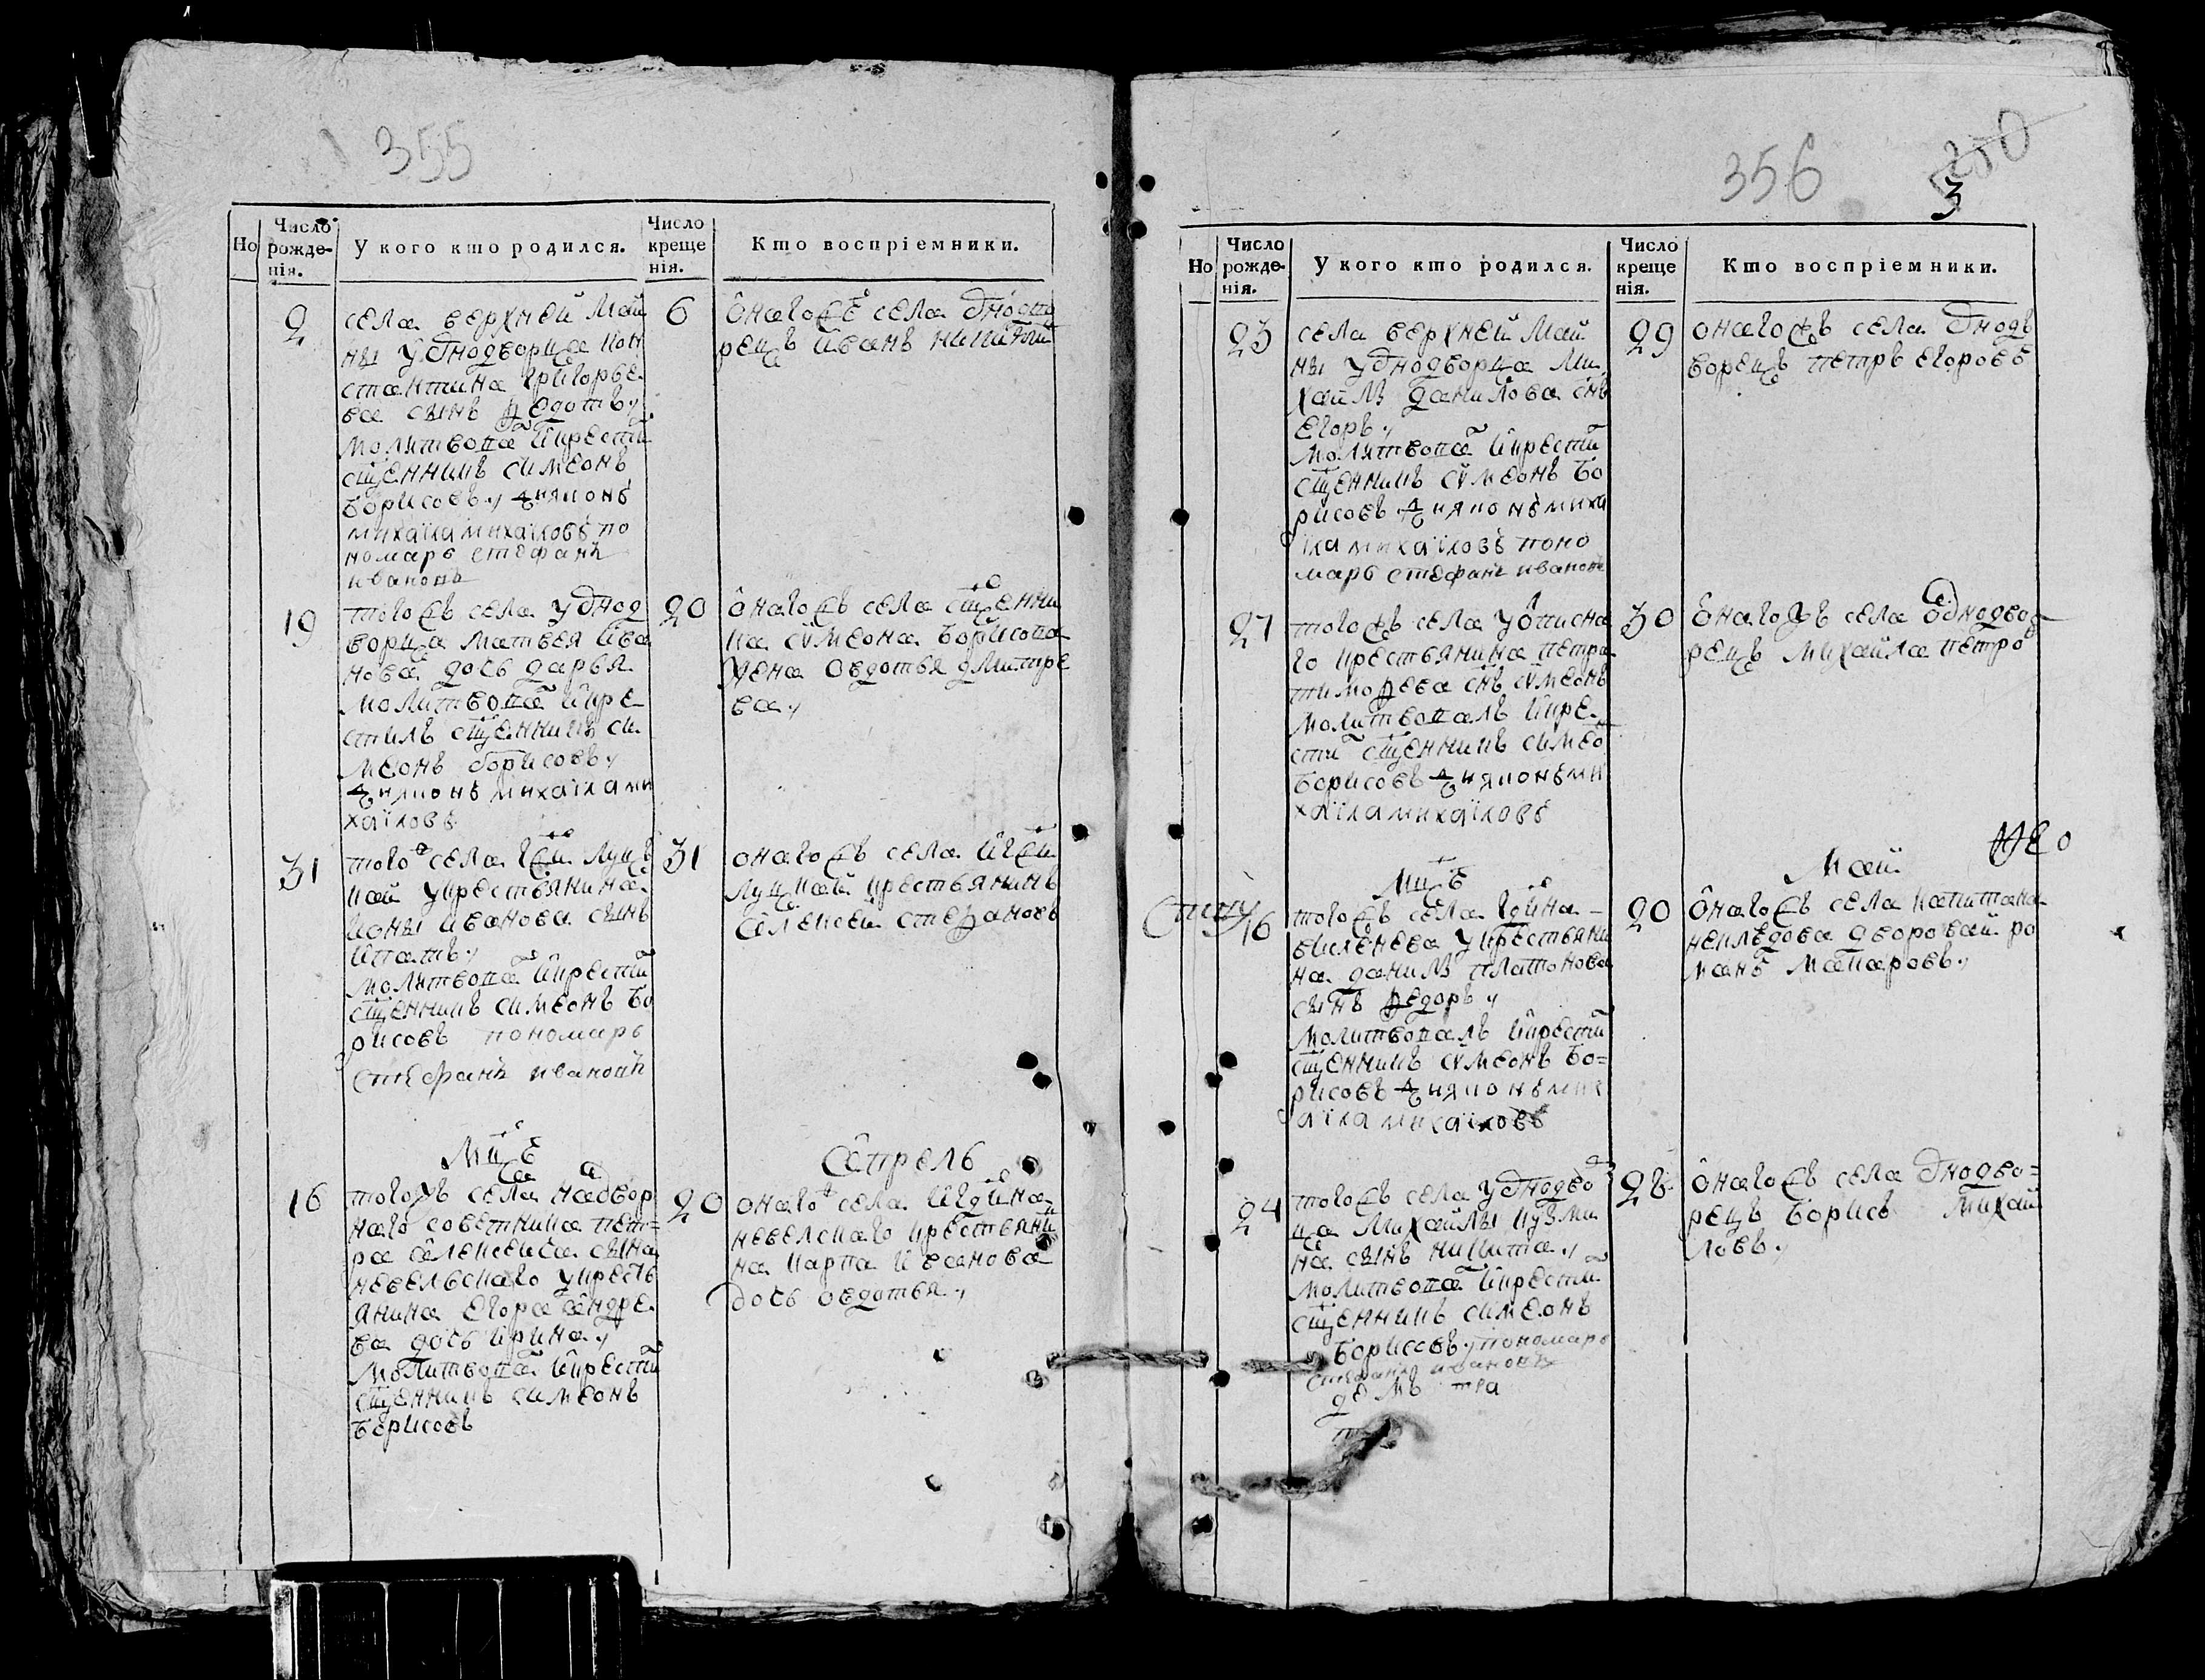 355
Но
Число рожде-нія.
У кого кто родился.
Число креще нія.
Кто воспріемники.
2
села верхней Май
ны у однодворца кон
стантина григорье
ва сынъ ѳедотъ
молитвова и крести
сщенникъ симеонъ
борисовъ дияконъ
михаіла михаіловъ по
номарь стефанъ
ивановъ
6
онаго жъ села однодво
рецъ иванъ никитин
19
того жъ села у однод
ворца матвея ива
нова дочь дарья
молитвова и кре
стилъ сщенникъ си
меонъ борисовъ
дияконъ михаіла ми
хаіловъ
20
онаго жъ села сщенни
ка симеона борисова
жена овдотья дмитре
ва
31
того села
кой у крестьянина
ионы иванова сынъ
ипатъ
молитвова и крести
сщенникъ симеонъ бо
рисовъ пономарь
стефанъ ивановъ
31
онаго жъ села
крестьянинъ
алексеи степановъ
Апрель
16
того жъ села надвор
наго советника пет
ра алексеича сына
невельскаго у кресть
янина егора андре
ва дочь ирина
молитвова и крести
сщенникъ симеонъ
борисовъ
20
онаго села
невелскаго крестьяни
на карпа иванова
дочь овдотья
356
3
Но
Число рожде-нія.
У кого кто родился.
Число креще нія.
Кто воспріемники.
23
села верхней май
ны у однодворца ми
хайлы данилова снъ
егоръ
молитвова и крести
сщенникъ симеонъ бо
рисовъ дияконъ миха
іла михаіловъ поно
марь стефанъ ивановъ
29
онаго жъ села однод
ворецъ петръ егоровъ
27
того жъ села у описна
го крестьянина петра
тимоѳева снъ симеонъ
молитвовалъ и кре
сти сщенникъ симео
борисовъ дияконъ ми
хаіла михаіловъ
30
онаго жъ села однодво
рецъ михайла петро
Май
16
того жъ села
у крестьяни
на данилы платонова
сынъ ѳедоръ
молитвовалъ и крести
сщенникъ симеонъ бо=
рисовъ дияконъ мих
аіла михаіловъ
20
онаго жъ села капитана
дворовай ро
манъ макаровъ
24
того жъ села у однодво
ца михайлы кузми
на сынъ никита
молитвова и крести
сщенникъ симеонъ
борисовъ пономарь
стефанъ ивановъ
28
онаго жъ села однодво=
рецъ борисъ михай
ловъ